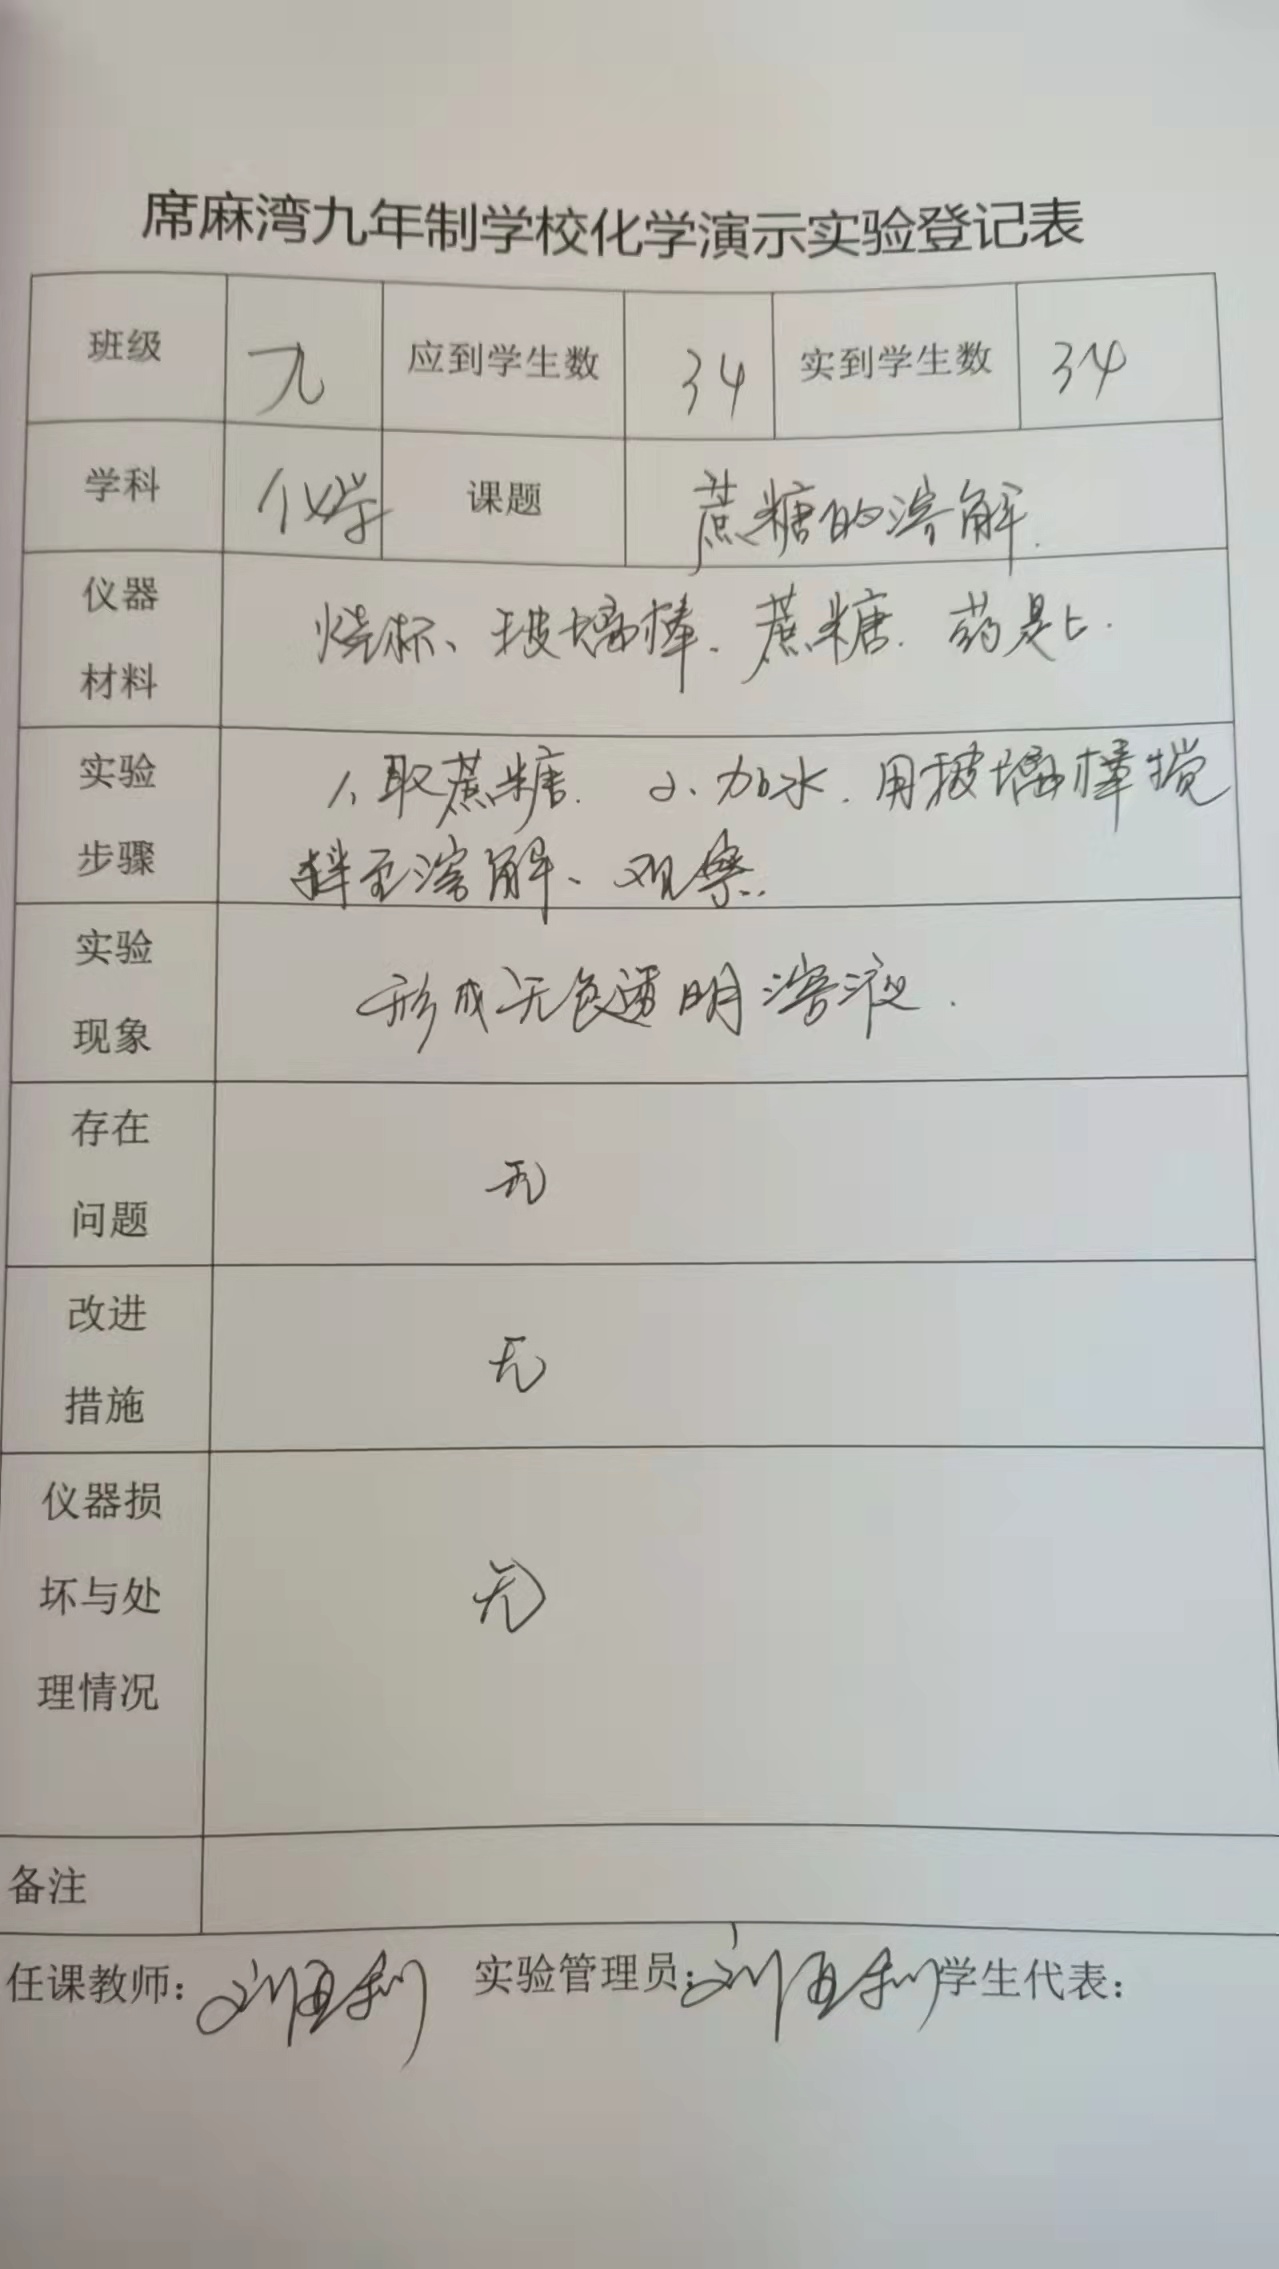 席麻湾九年制学校化学演示实验登记表
班级 九 应到学生数 34 实到学生数 34
学科 化学 课题 蔗糖的溶解.
仪器
材料
烧杯、玻璃棒、蔗糖、药匙.
实验
步骤
1、取蔗糖. 2、加水.用玻璃棒搅
拌至溶解、观察.
实验
现象
形成无色透明溶液.
存在
问题
无
改进
措施
无
仪器损
坏与处
理情况
无
备注
任课教师：刘亚利 实验管理员：刘亚利 学生代表：